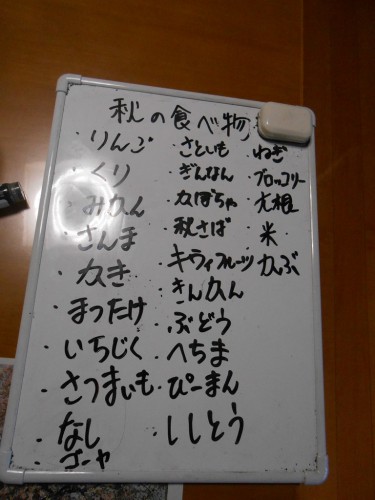 秋の食べ物
・りんご
・くり
・みかん
・さんま
・カき
・まつたけ
・いちじく
・さつまいも
・なし
・ゴーヤ
・さといも
・ぎんなん
・カぼちゃ
・秋さば
・キウィフルーツ
・きんかん
・ぶどう
・へちま
・ぴーまん
・ししとう
・ねぎ
・ブロッコリー
・大根
・米
・カぶ